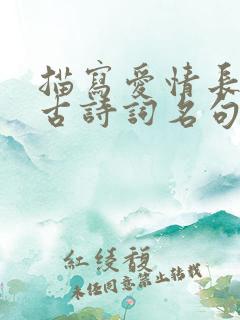 描寫愛情長
古詩詞名句
紅綾馥
未經同意禁止轉載